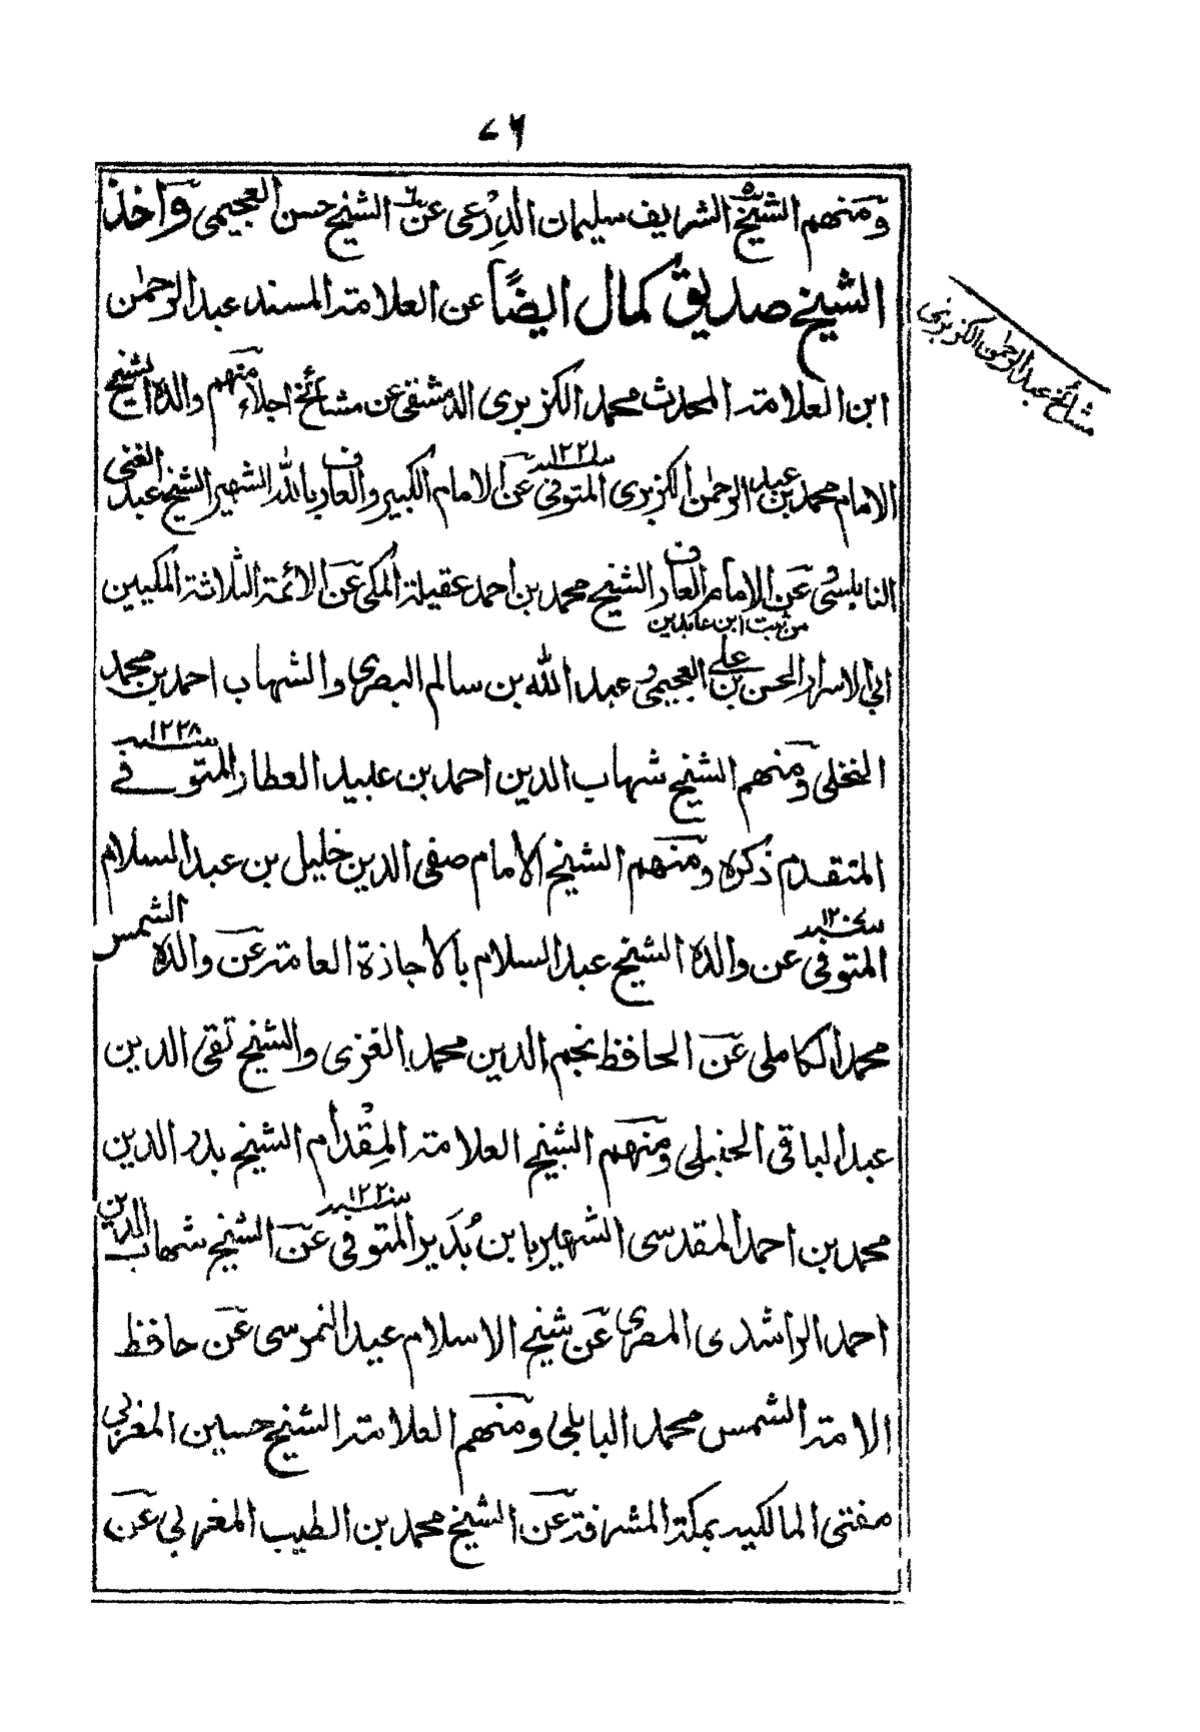 ٧٦
ومنهم الشيخ الشريف سليمان الدرعى عن الشيخ حسن العجيمى وَاخذ
الشيخ صديق كمال ايضًا عن العلامة المسند عبد الرحمٰن
ابن العلامة المحدث محمد الكزبرى الدمشقى عن مشائخ اجلاء منهم والده الشيخ
مشائخ عبد الرحمن الكزبرى
الامام محمد بن عبد الرحمٰن الكزبرى المتوفى سنة ١٢٢١ عن الامام الكبير والعارف بالله الشهير الشيخ عبد الغنى
النابلسى عن الامام العارف الشيخ محمد بن احمد عقيلة المكى عن الائمة الثلاثة المكيين
من ثبت ابن عابدين
ابى الاسرار الحسن بن على العجيمى وعبد الله بن سالم البصرى والشهاب احمد بن محمد
النخلى ومنهم الشيخ شهاب الدين احمد بن عبيد العطار المتوفے سنة ١٢٢٨
المتقدم ذكره ومنهم الشيخ الامام صفى الدين خليل بن عبد السلام
المتوفى سنة ١٢٠٧ عن والده الشيخ عبد السلام بالاجازة العامة عن والده الشمس
محمد الكاملى عن الحافظ نجم الدين محمد الغزى والشيخ تقى الدين
عبد الباقى الحنبلى ومنهم الشيخ العلامة المِقْدام الشيخ بدر الدين
محمد بن احمد المقدسى الشهير بابن بُدَير المتوفى سنة ١٢٢٠ عن الشيخ شهاب الدين
احمد الراشدى المصرى عن شيخ الاسلام عيد النمرسى عن حافظ
الامة الشمس محمد البابلى ومنهم العلامة الشيخ حسين المغربى
مفتى المالكيه بمكة المشرفة عن الشيخ محمد بن الطيب المغربى عن